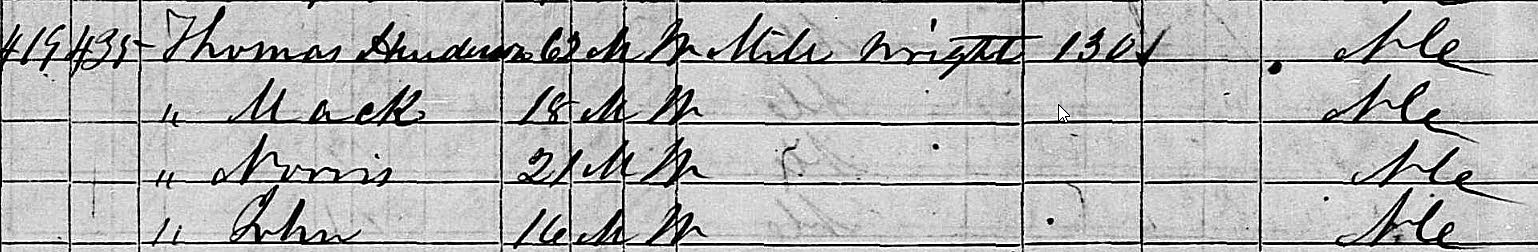 419 435 Thomas Henderson 62 M W Mill Wright 130 N Ca
" Mack 18 M W N Ca
" Norris 21 M W N Ca
" John 16 M W N Ca